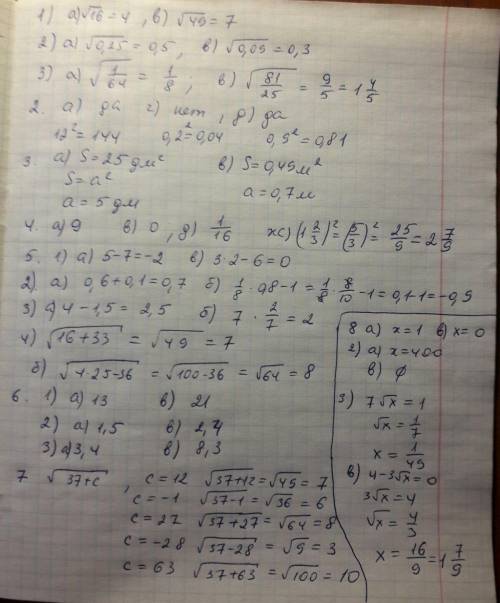 1) а) √16 = 4 , в) √49 = 7
2) а) √0,25 = 0,5 , в) √0,09 = 0,3
3) а) √(1/64) = 1/8 ; в) √(81/25) = 9/5 = 1 4/5
2. а) да г) нет , д) да
12² = 144 0,2² = 0,04 0,9² = 0,81
3. а) S = 25 дм² в) S = 0,49 м²
S = a² a = 0,7 м
a = 5 дм
4. а) 9 в) 0 , д) 1/16 ж) (1 2/3)² = (5/3)² = 25/9 = 2 7/9
5. 1) а) 5 - 7 = -2 в) 3·2 - 6 = 0
2) а) 0,6 + 0,1 = 0,7 б) 1/8 · 0,8 - 1 = 1/8 · 8/10 - 1 = 0,1 - 1 = -0,9
3) а) 4 - 1,5 = 2,5 б) 7 · 2/7 = 2
4) √(16+33) = √49 = 7
б) √(4·25-36) = √(100-36) = √64 = 8
6. 1) а) 13 в) 21
2) а) 1,5 в) 2,4
3) а) 3,4 в) 8,3
7 √(37+c) , c = 12 √(37+12) = √49 = 7
c = -1 √(37-1) = √36 = 6
c = 27 √(37+27) = √64 = 8
c = -28 √(37-28) = √9 = 3
c = 63 √(37+63) = √100 = 10
8 а) x = 1 в) x = 0
2) а) x = 400
в) ∅
3) 7√x = 1
√x = 1/7
x = 1/49
в) 4 - 3√x = 0
3√x = 4
√x = 4/3
x = 16/9 = 1 7/9